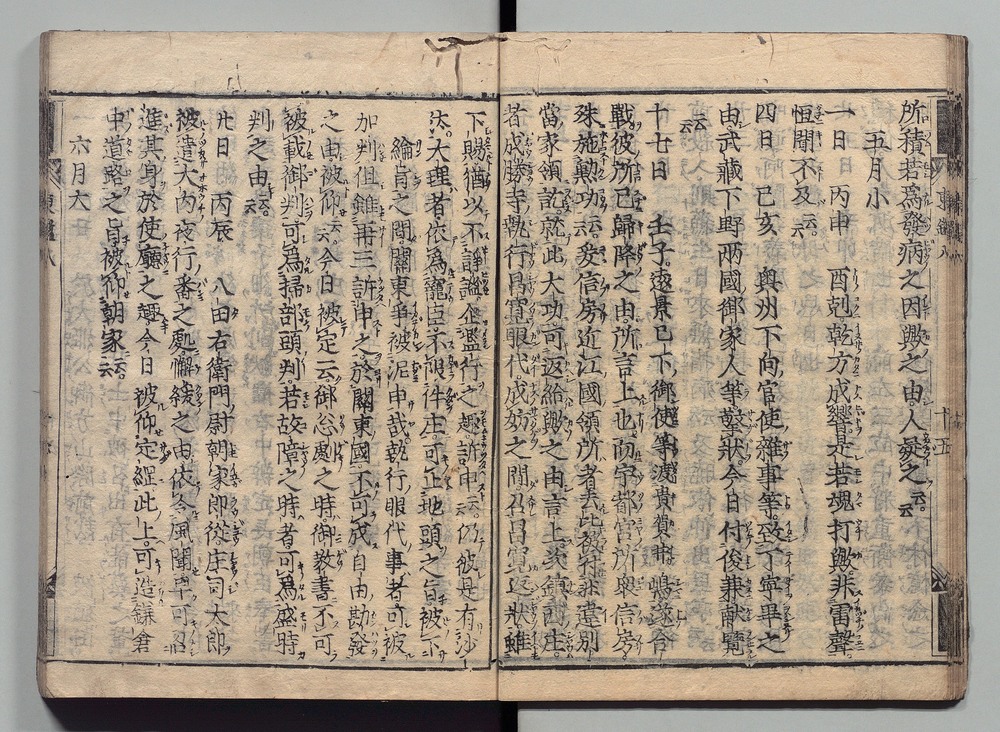 所積若爲發病之因歟之由人疑之云云
五月小
一日 丙申 酉剋乾方成響是若魂打歟非雷聲
恒聞不及云云
四日 己亥 奥州下向官使雜事等致丁寧畢之
由武藏下野兩國御家人等整狀今日付俊兼献覽
云云
十七日 壬子遠景已下御使等渡貴賀井嶋遂合
戰彼所已歸降之由所言上也而宇都宮所衆信房
殊施勲功云云爰信房近江國領所者去比被付非違別
當家領訖就此大功可返給歟之由言上次鎮西庄
者成勝寺執行昌寛眼代成妨之間召昌寛返狀雖
下賜猶以不靜謐企濫行之趣訴申云云仍彼是有沙
汰大理者依爲寵臣不限件庄可止地頭之旨被下
綸旨之間關東爭被泥申哉執行眼代事者可被
加判但雖再三訴申之於關東國不可成自由勘發
之由被仰云云今日被定云御忩劇之時御教書不可
被載御判可爲掃部頭判若故障之時者可爲盛時
判之由云云
廿日 丙辰 八田右衛門尉朝家郎從庄司太郎
被遣大内夜行番之處懈緩之由依令風聞早可召
進其身於使廳之趣今日被仰定經此上可造鎌倉
中道路之旨被仰朝家云云
六月大
東鑑八
十五